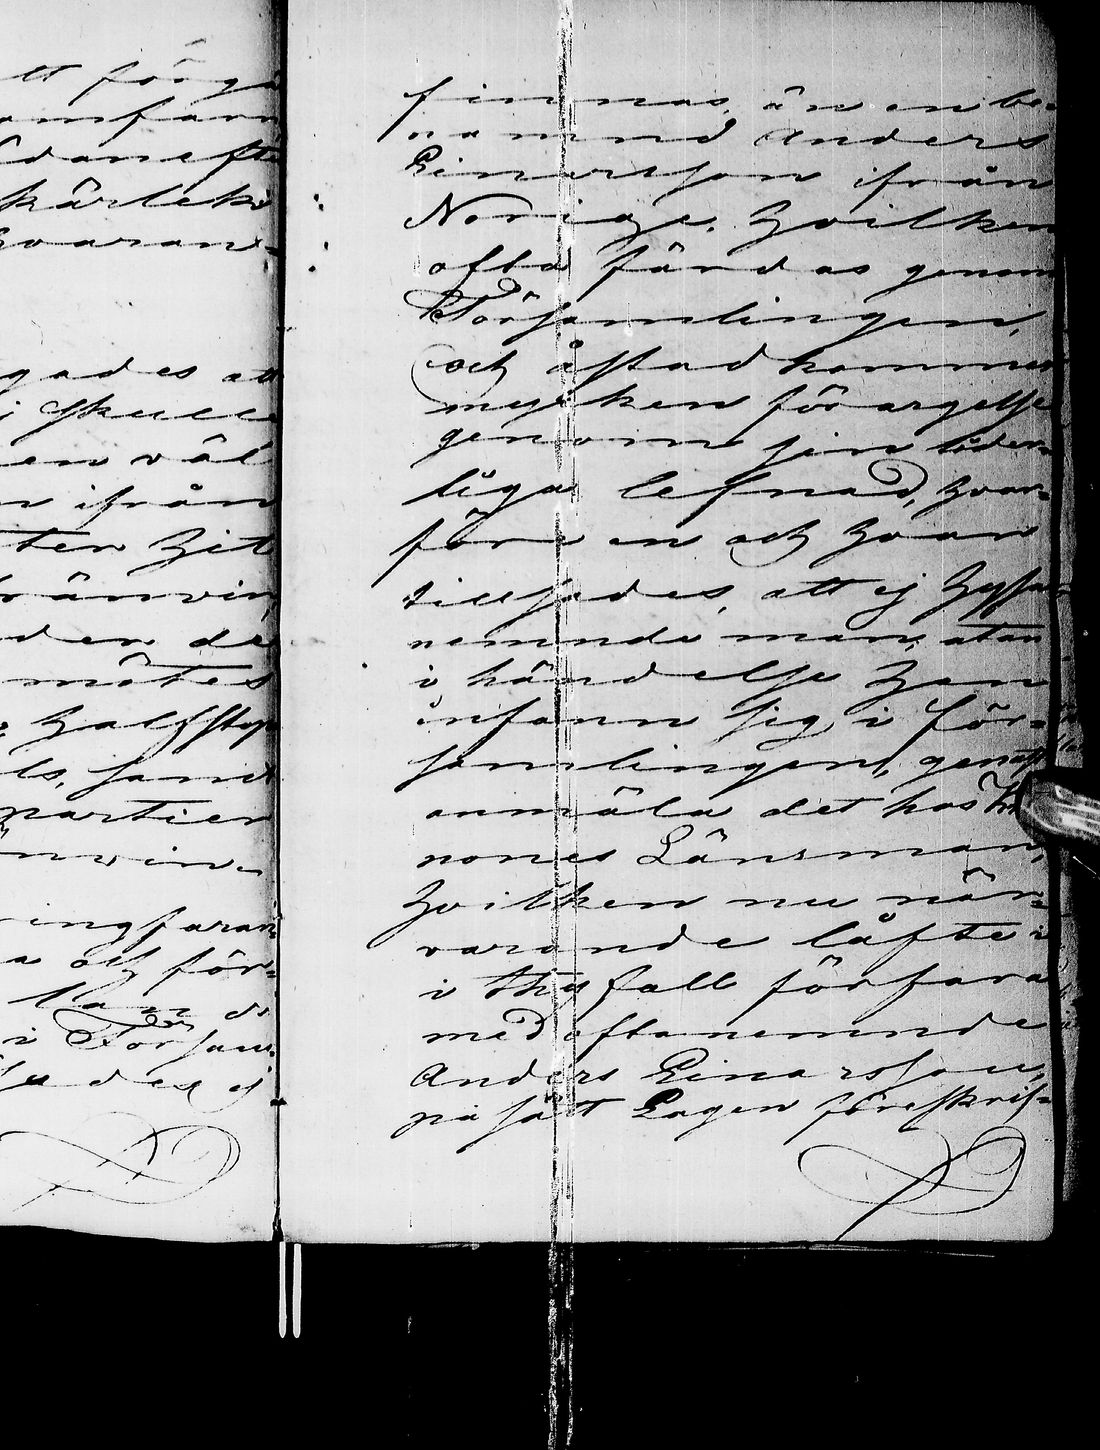 tt förgå
omfarn
sdan efte
kärleks
hvaran-
gades att
i skulle
en väl
n ifrån
ten hit
bränvin
den de
mötes
halfstop
ls, samt
partier
änvin
ingfaran-
a och för-
i Försam-
ades ej
finnas, än en be-
nämnd Anders
Einarsson ifrån
Norige. Hvilken
ofta färdas genom
Församlingen,
och åstadkommer
mycken förargelse
genom sin lider-
liga lefnad, hvar-
före en och hvar
tillsades, att ej hysa
nemnde man, utan
i händelse han
infann sig i För-
samlingen, genast
anmäla det hos Kro-
nones Länsman,
hvilken nu när-
varande låfte
i thy fall förfara
med oftanemnde
Anders Einarsson,
på sätt Lagen föreskrif-